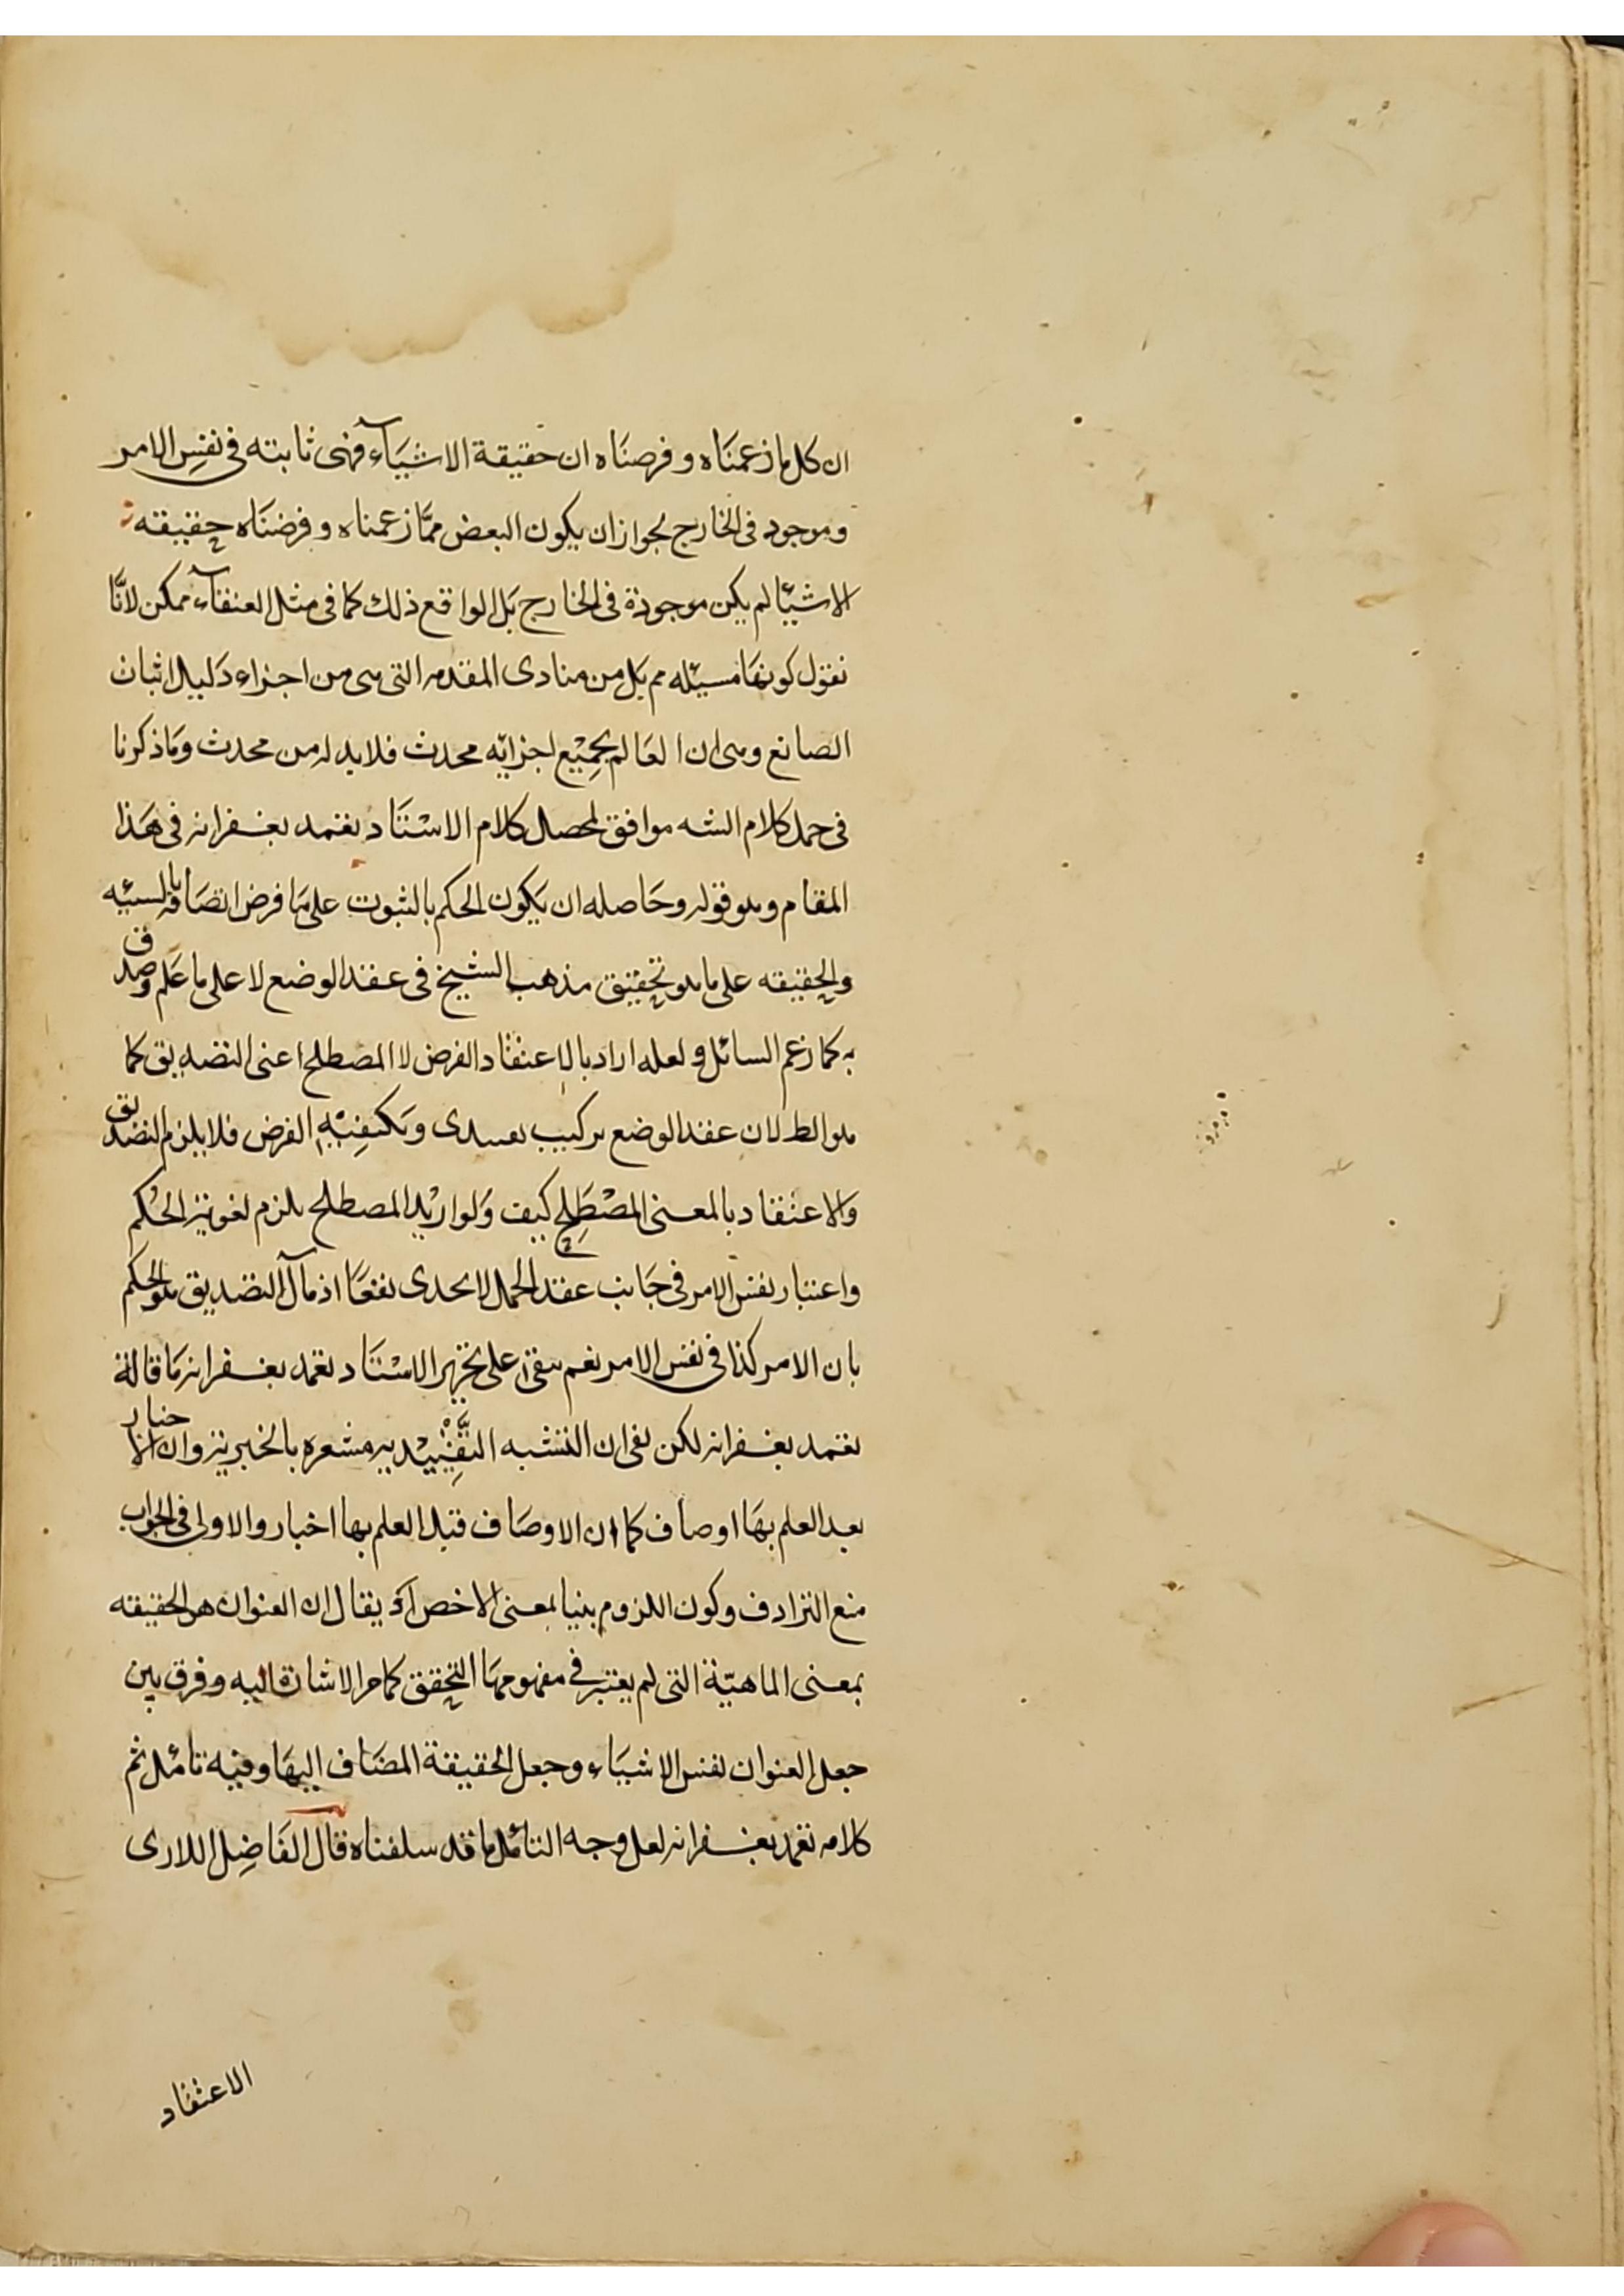 ان كل ما زعمناه و فرصناه ان حقيقة الاشيآء فهى ثابته فى نفس الامر
وموجود فى الخارج لجواز ان يكون البعض ممّا زعمناه و فرضناه حقيقته
الاشيئا لم يكن موجودة فى الخارج بل الواقع ذلك كما فى مثل العنقآء ممكن لانّا
نقول كونها مسئله مم بل من منادى المقدمه التى هى من اجزاء دليل اثبات
الصانع وهى ان العالم بجميع اجزائه محدث فلابد له من محدث وماذكرنا
فى حمل كلام الشه موافق لمحصل كلام الاستاد تغمد بغفرانه فى هذا
المقام وهو قوله وحاصله ان يكون الحكم بالثبوت على ما فرض اتصافه بالسئيه
والحقيقه على ما هو تحقيق مذهب الشيخ فى عقد الوضع لا على ما علم وصدق
به كما زعم السائل و لعله اراد بالاعتقاد الفرض لا المصطلح اعنى التصديق كما
هو الط لان عقد الوضع تركيب تقييدى ويكفيه الفرض فلا يلزم التصديق
والاعتقاد بالمعنى المصطلح كيف ولو اريد المصطلح يلزم لغوية الحكم
واعتبار نفس الامر فى جانب عقد الحمل لا يجدى نفعا اذ مآل التصديق هو الحكم
بان الامر كذا فى نفس الامر نعم يبقى على تحرير الاستاد تغمد بغفرانه ما قاله
تغمد بغفرانه لكن بقى ان النسبه التقييديه مشعره بالخبريه وان الاخبار
بعد العلم بها اوصاف كما ان الاوصاف قبل العلم بها اخبار والاولى فى الجواب
منع الترادف وكون اللزوم بينا بمعنى الاخص او يقال ان العنوان هو الحقيقه
بمعنى الماهيّة التى لم يعتبر فى مفهومها التحقق كما مر الاشارة اليه وفرق بين
جعل العنوان نفس الاشياء وجعل الحقيقة المضاف اليها وفيه تامل تم
كلامه تغمد بغفرانه لعل وجه التامل ما قد سلفناه قال الفاضل اللارى
الاعتقاد